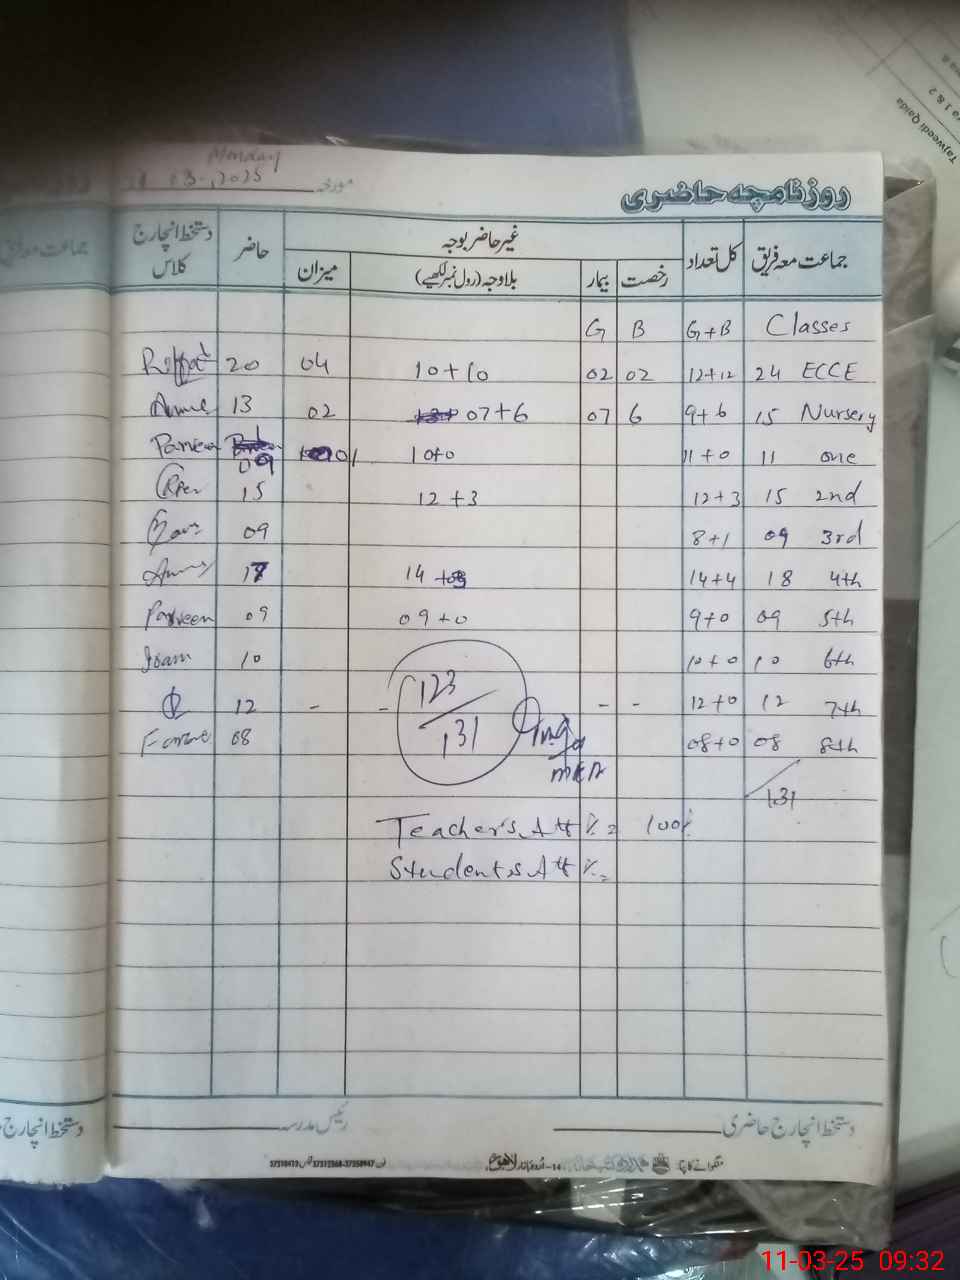 Tajweedi Qaida
ra 1 & 2
Monday
03-,2025
مورخہ
روزنامچہ حاضری
جماعت معہ فریق کل تعداد غیر حاضر بوجہ حاضر دستخط انچارج کلاس
رخصت بیمار بلاوجہ (رول نمبر لکھیے) میزان
G B G+B Classes
20 04 10+10 02 02 12+12 24 ECCE
13 02 07+6 07 6 9+6 15 Nursery
Parveen 09 01 10+0 11+0 11 one
15 12+3 12+3 15 2nd
09 8+1 09 3rd
17 14 +03 14+4 18 4th
Parveen 09 09+0 9+0 09 5th
10 10+0 10 6th
12 - - - - 12+0 12 7th
08 08+0 08 8th
123
131
131
Teacher's Att %= 100%
Students Att %=
دستخط انچارج حاضری
رئیس مدرسہ
دستخط انچارج
جماعت معہ فریق
11-03-25 09:32